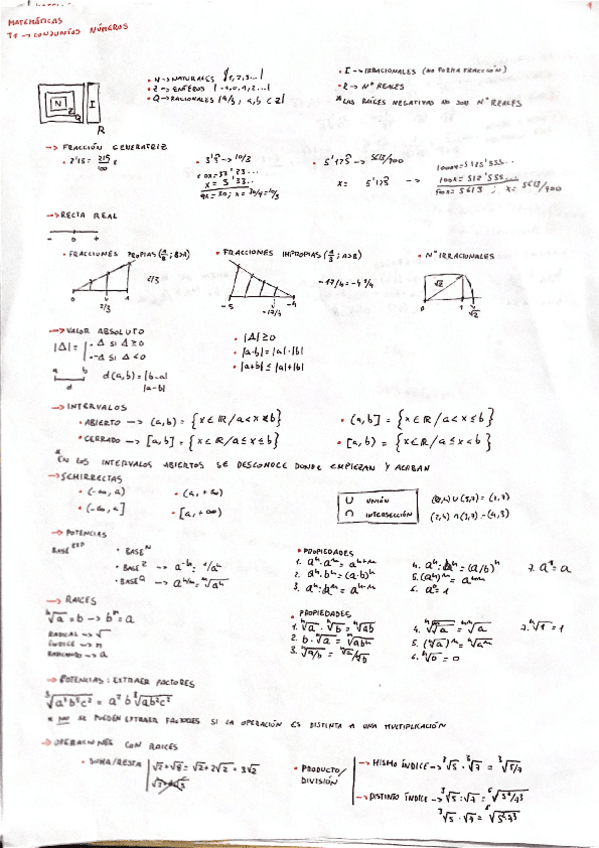 MATEMÁTICAS
T1 -> CONJUNTOS NÚMEROS
• N -> NATURALES {1, 2, 3...}
• Z -> ENTEROS {-1, 0, 1, 2...}
• Q -> RACIONALES {a/b ; a, b ∈ Z}
• I -> IRRACIONALES (NO FORMA FRACCIÓN)
• R -> Nº REALES
* LAS RAÍCES NEGATIVAS NO SON Nº REALES
N Z Q I
R
-> FRACCIÓN GENERATRIZ
• 2'15 = 215/100
• 3'3 -> 10/3
x = 3'33..
• 5'125 -> 5613/900
x = 5'125 ->
1000x = 5125'555...
100x = 512'555...
900x = 5613 ; x = 5613/900
-> RECTA REAL
- 0 +
• FRACCIONES PROPIAS
2/3
0 2/3 1
• FRACCIONES IMPROPIAS
-17/4 = -4
-5 -17/4 -4
• Nº IRRACIONALES
√2
0 1 √2
-> VALOR ABSOLUTO
|Δ| = Δ SI Δ ≥ 0
-Δ SI Δ < 0
• |Δ| ≥ 0
• |a·b| = |a|·|b|
• |a+b| ≤ |a|+|b|
a b
d
d(a,b) = |b-a|
|a-b|
-> INTERVALOS
• ABIERTO -> (a,b) = {x ∈ R / a < x < b}
• CERRADO -> [a,b] = {x ∈ R / a ≤ x ≤ b}
• (a,b] = {x ∈ R / a < x ≤ b}
• [a,b) = {x ∈ R / a ≤ x < b}
* EN LOS INTERVALOS ABIERTOS SE DESCONOCE DONDE EMPIEZAN Y ACABAN
-> SEMIRRECTAS
• (-∞, a)
• (-∞, a]
• (a, +∞)
• [a, +∞)
∪ UNIÓN
∩ INTERSECCIÓN
-> POTENCIAS
BASE EXP
• BASE N
• BASE Z -> a⁻ⁿ = 1/aⁿ
• BASE Q -> 
• PROPIEDADES
1. aⁿ·aᵐ = aⁿ⁺ᵐ
2. aⁿ·bⁿ = (a·b)ⁿ
3. aⁿ:aᵐ = aⁿ⁻ᵐ
4. aⁿ:bⁿ = (a/b)ⁿ
5. (aⁿ)ᵐ = aⁿᵐ
6. a⁰ = 1
7. a¹ = a
-> RAÍCES
ⁿ√a = b -> bⁿ = a
RADICAL -> √
ÍNDICE -> n
RADICANDO -> a
• PROPIEDADES
1. ⁿ√a · ⁿ√b = ⁿ√ab
2. b·ⁿ√a = ⁿ√abⁿ
3. ⁿ√a/b = ⁿ√a/ⁿ√b
4. ᵐ√ⁿ√a = ᵐⁿ√a
5. (ⁿ√a)ᵐ = ⁿ√aᵐ
6. ⁿ√0 = 0
7. ⁿ√1 = 1
-> POTENCIAS: EXTRAER FACTORES
* NO SE PUEDEN EXTRAER FACTORES SI LA OPERACIÓN ES DISTINTA A UNA MULTIPLICACIÓN
-> OPERACIONES CON RAÍCES
• SUMA/RESTA √2+√8 = √2+2√2 = 3√2
• PRODUCTO/
DIVISIÓN
-> MISMO ÍNDICE -> ³√5 : ³√7 = ³√5/7
-> DISTINTO ÍNDICE -> ³√5 : √7 = ⁶√5²/7³
³√5 · √7 = ⁶√5²·7³